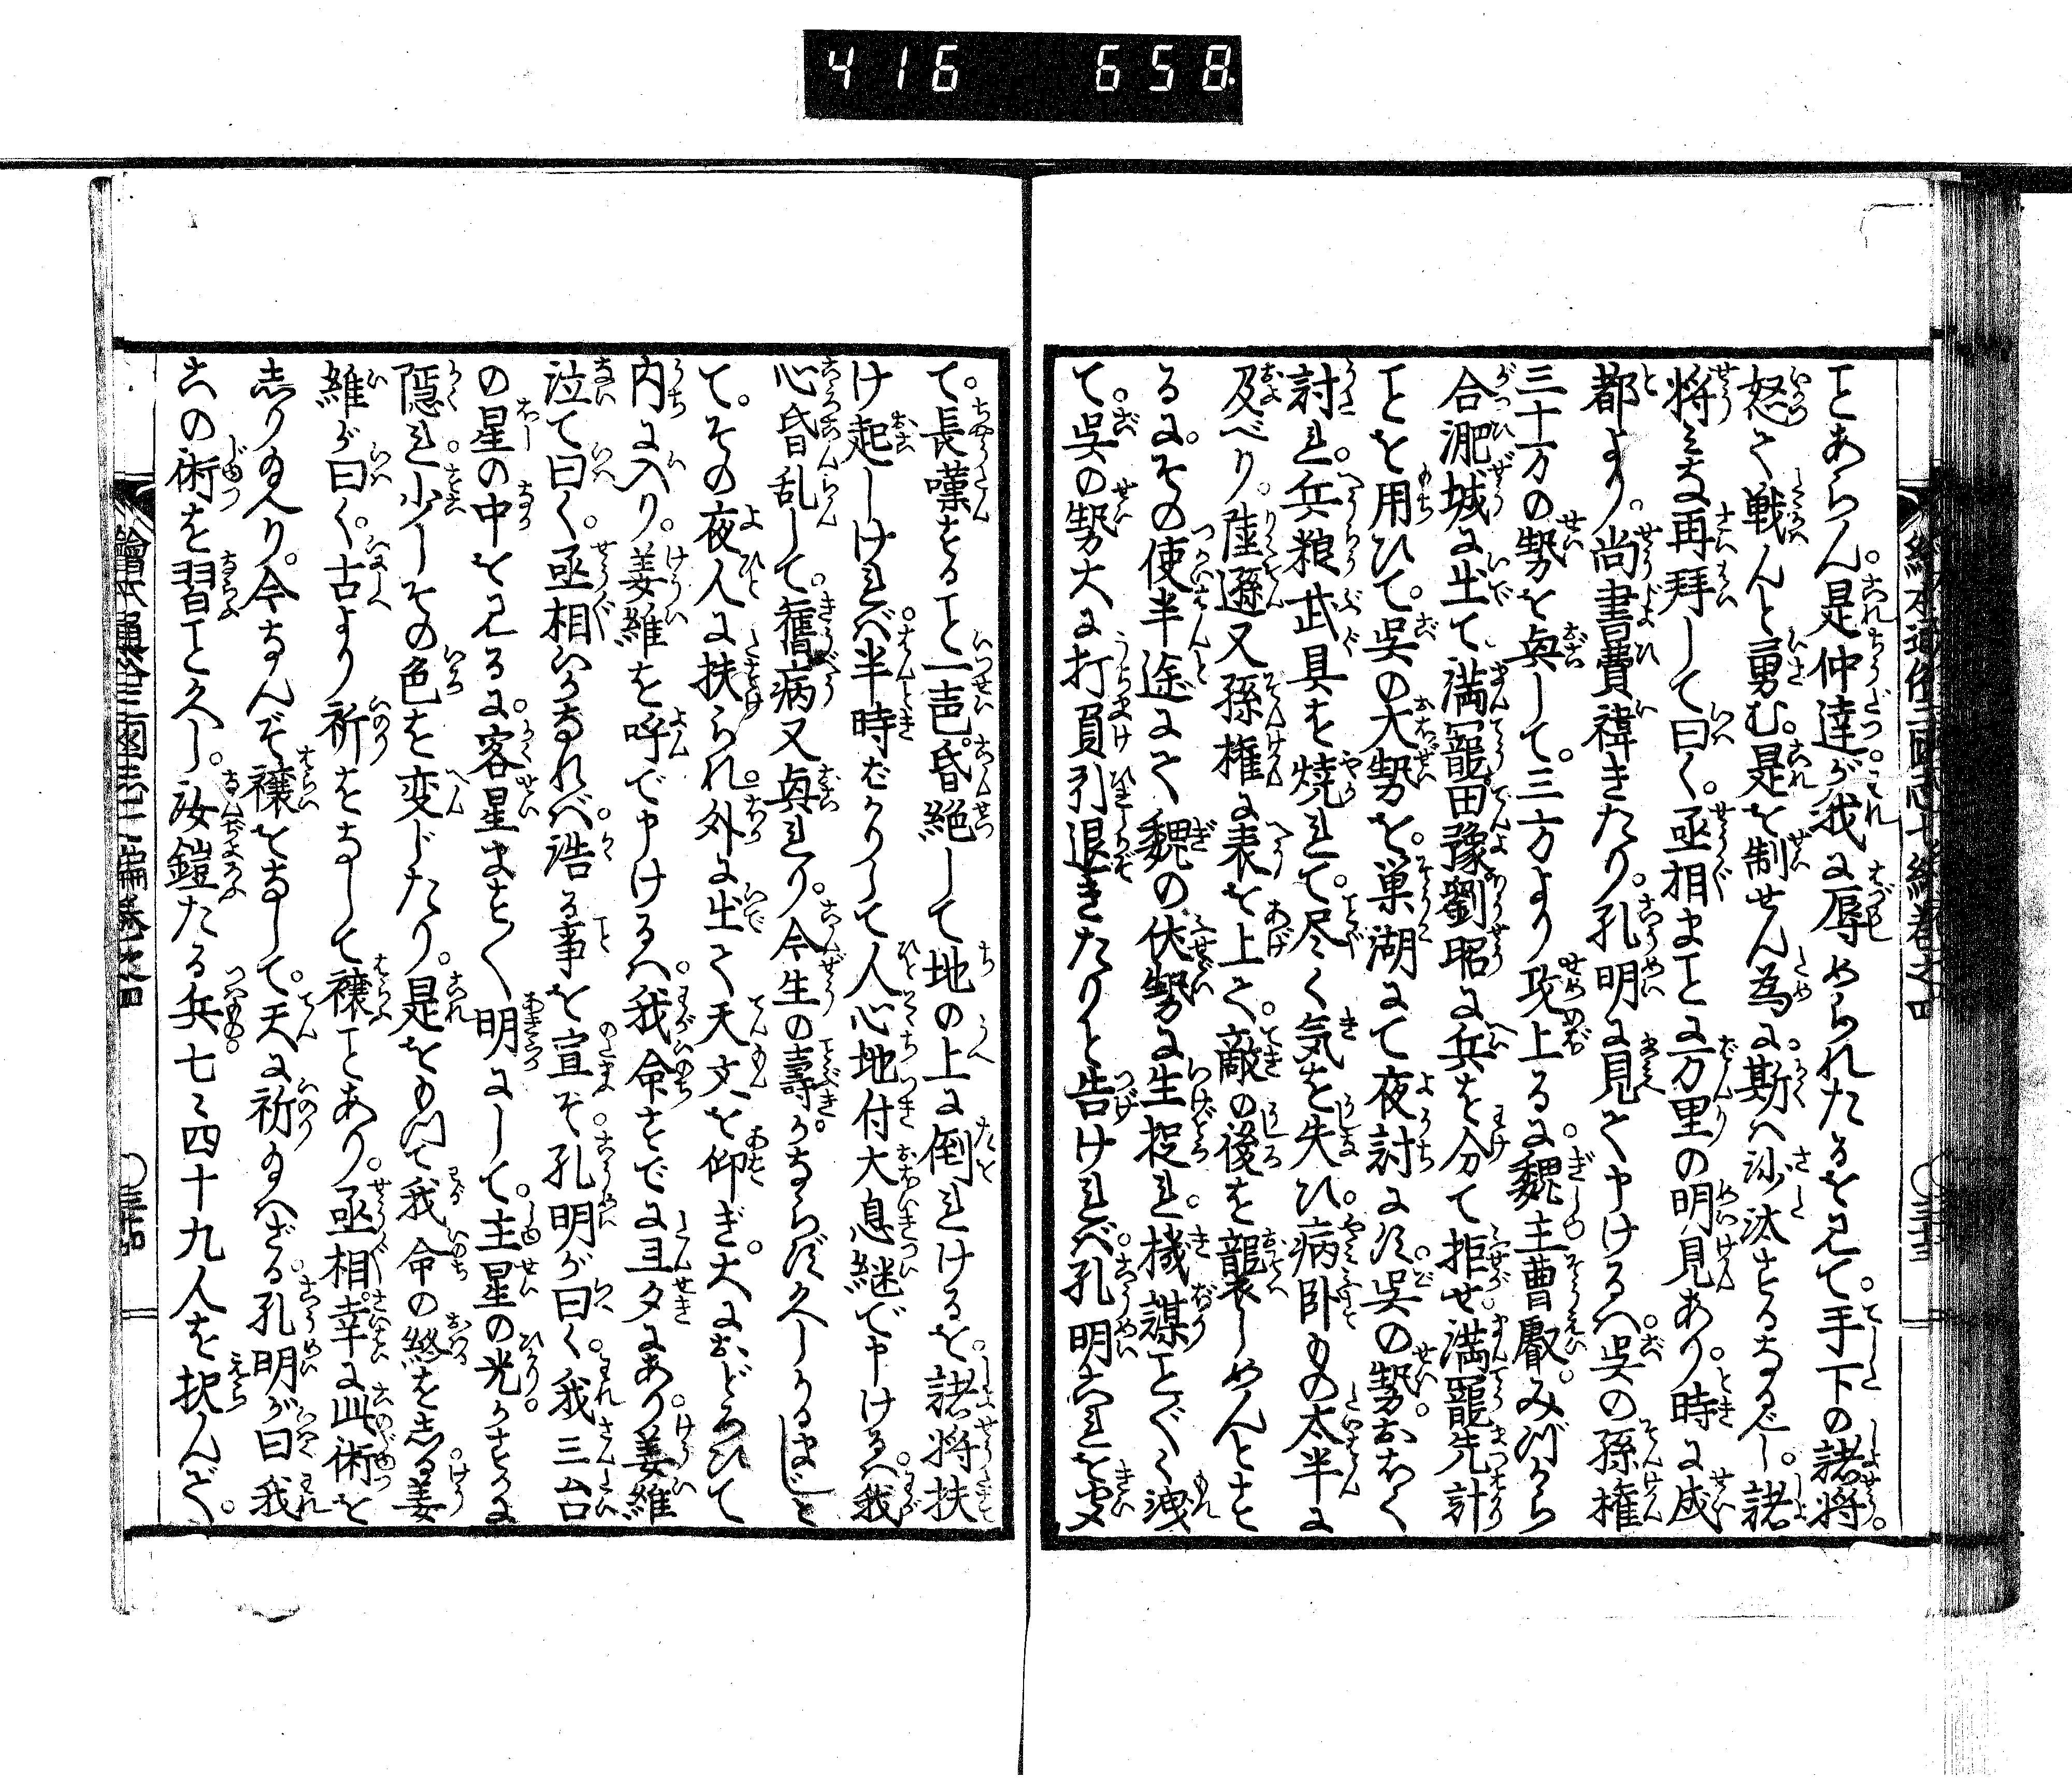 416 658
ことあらん。是仲達が我に辱められたるを見て。手下の諸将。
怒て戦んと勇む。是を制せん為に。斯ハ沙汰するなるべし。諸
将みな再拝して曰く。丞相まことに万里の明見あり。時に成
都より。尚書費禕きたり。孔明に見て申けるハ。呉の孫権
三十万の勢を興して。三方より攻上る。に魏主曹叡。みづから
合淝城に出て。満寵田豫劉昭に兵を分て拒せ。満寵先計
ことを用ひて。呉の大勢を。巣湖にて夜討にす。呉の勢おほく
討れ。兵粮武具を焼れて。尽く気を失ひ。病卧もの太半に
及べり。陸遜又孫権に表を上て。敵の後を襲しめんとす
るに。その使半途にて魏の伏勢に生捉れ。機謀ことごとく洩
て。呉の勢大に打負引退きたりと告けれバ。孔明これを聞
て。長嘆すること一声。昏絶して地の上に倒れけるを。諸将扶
け起しけれバ。半時ばかりして人心地付大息継で申けるハ。我
心昏乱して。舊病又興れり。今生の壽。かならず久しかるまじと
て。その夜人に扶られ。外に出て天文を仰ぎ。大におどろひて
内に入り。姜維を呼で申けるハ。我命すでに旦夕にあり。姜維
泣て曰く。丞相いかなれバ。かく浩る事を宣ぞ。孔明が曰く。我三台
の星の中を見るに。客星まさしく明にして。主星の光。かすかに
隠れ。少しその色を変じたり。是をもつて我命の終を志る。姜
維が曰く。古より祈をなして禳ことあり。丞相。幸に此術を
志り給へり。今なんぞ禳をなして。天に祈り給ハざる。孔明が曰我
この術を習こと久し。汝鎧たる兵七々四十九人を択んで。
繪本通俗三國志七編巻之四